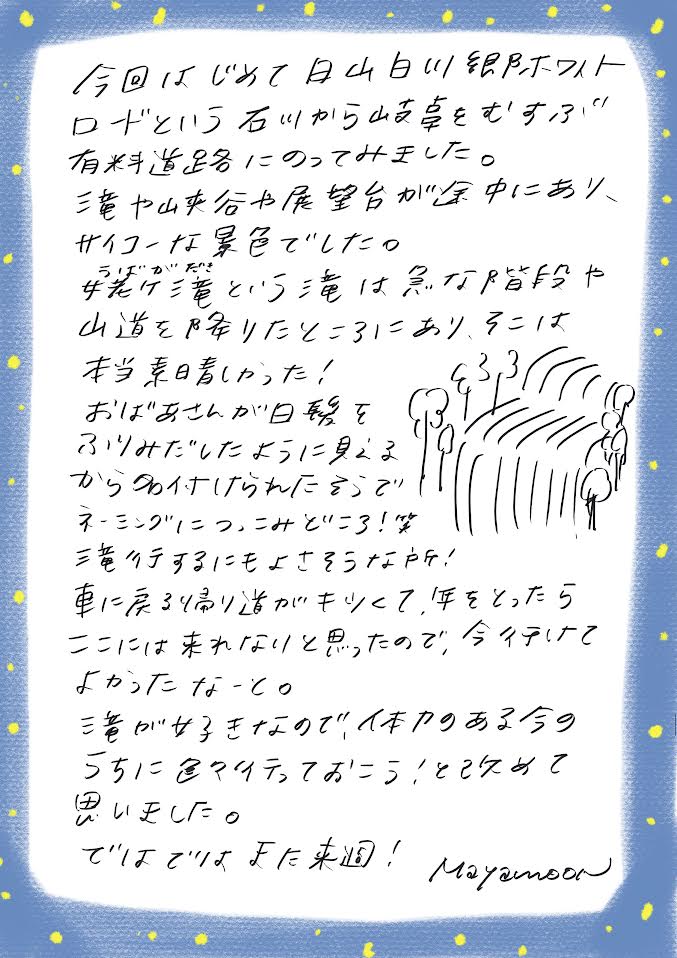 今回はじめて白山白川郷ホワイト
ロードという石川から岐阜をむすぶ
有料道路にのってみました。
滝や山峡谷や展望台が途中にあり、
サイコーな景色でした。
うばがだき
姥ヶ滝という滝は急な階段や
山道を降りたところにあり、そこは
本当素晴しかった!
おばあさんが白髪を
ふりみだしたように見える
から名付けられたそうで
ネーミングにつっこみどころ!笑
滝行するにもよさそうな所!
車に戻る帰り道がキツくて、年をとったら
ここには来れないと思ったので、今行けて
よかったなーと。
滝が好きなので、体力のある今の
うちに色々行っておこう!と改めて
思いました。
ではではまた来週!
Mayamoon